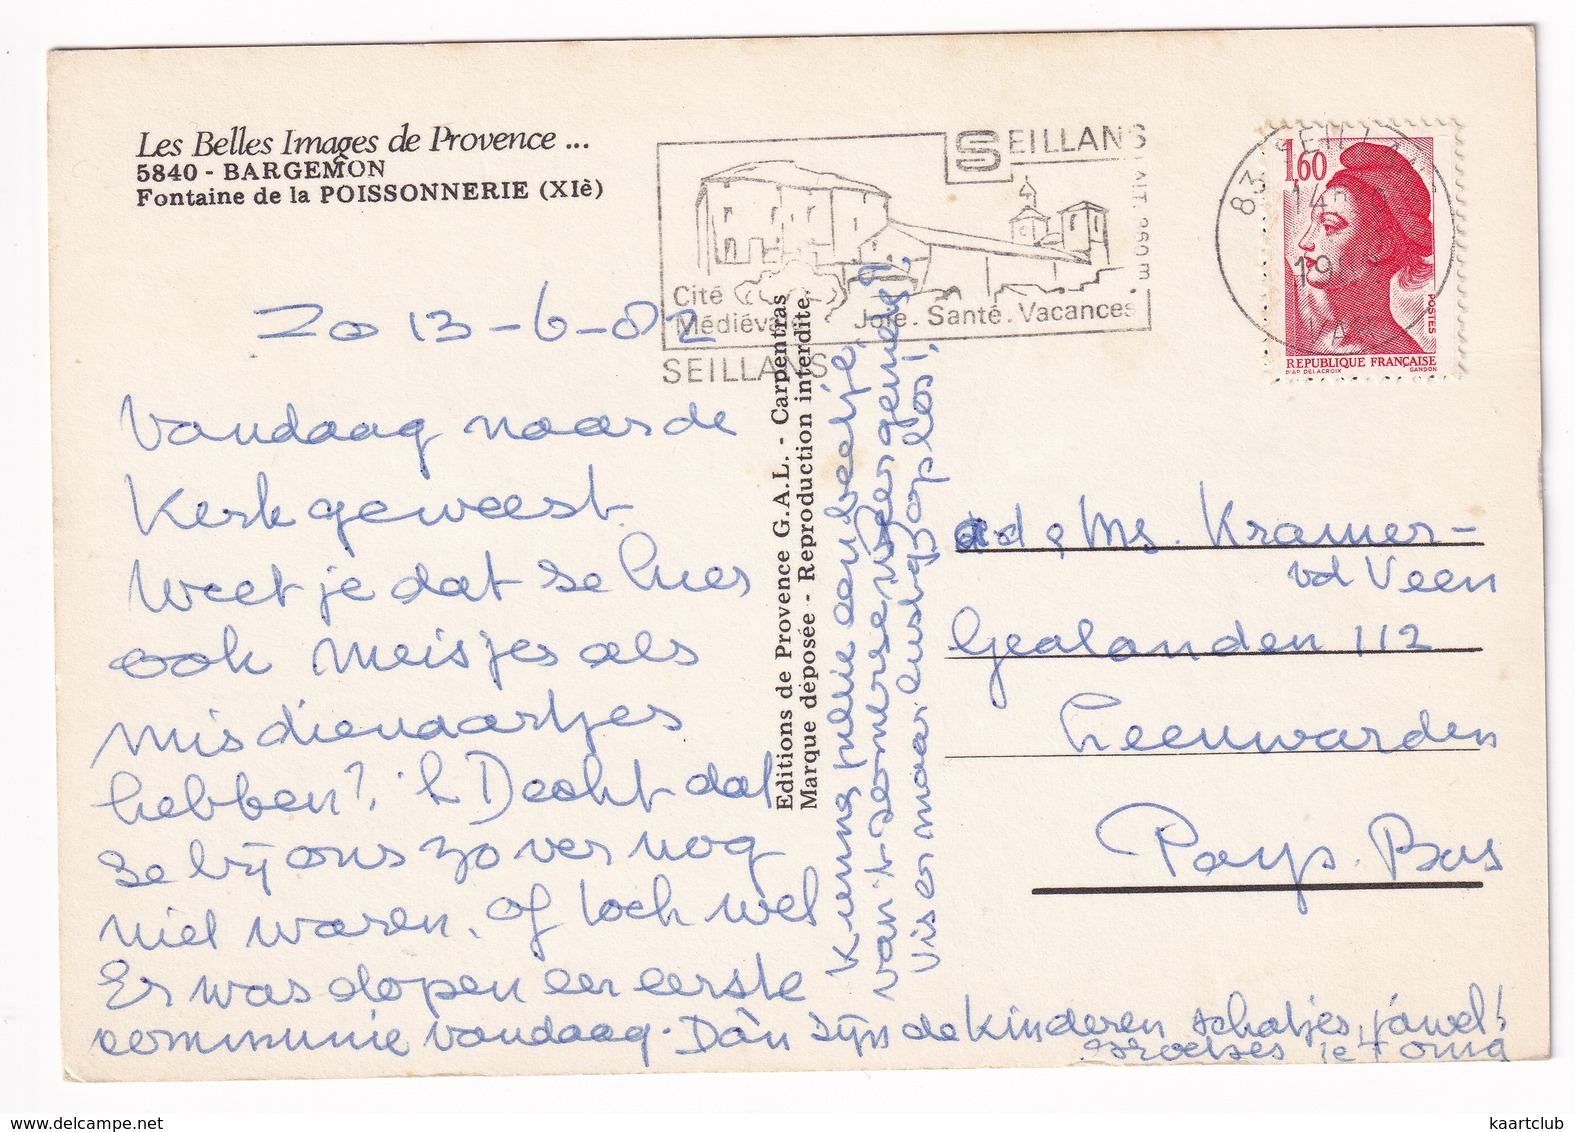 Les Belles Images de Provence ...
5840 - BARGEMON
Fontaine de la POISSONNERIE (XIè)
SEILLANS
ALT. 360 m.
Cité
Médiévale
Joie. Santé. Vacances
SEILLANS
83 SEILLANS
VAR
1,60
POSTES
REPUBLIQUE FRANÇAISE
D'AP. DELACROIX GANDON
Zo 13-6-82
Vandaag naar de
Kerk geweest.
Weet je dat se hier
ook meisjes als
misdienaartjes
hebben? 'k Dacht dat
se bij ons zo ver nog
niet waren. of toch wel
Er was dopen en eerste
communie vandaag. Dàn zijn de kinderen schatjes, jáwel!
Groetjes oma
Kunnen jullie een beetje,
van 't zomerse weer
er maar lustig op los!
Editions de Provence G.A.L. - Carpentras
Marque déposée - Reproduction interdite.
Ms. Kramer-
vd Veen
Gealanden 112
Leeuwarden
Pays-Bas
www.delcampe.net
kaartclub